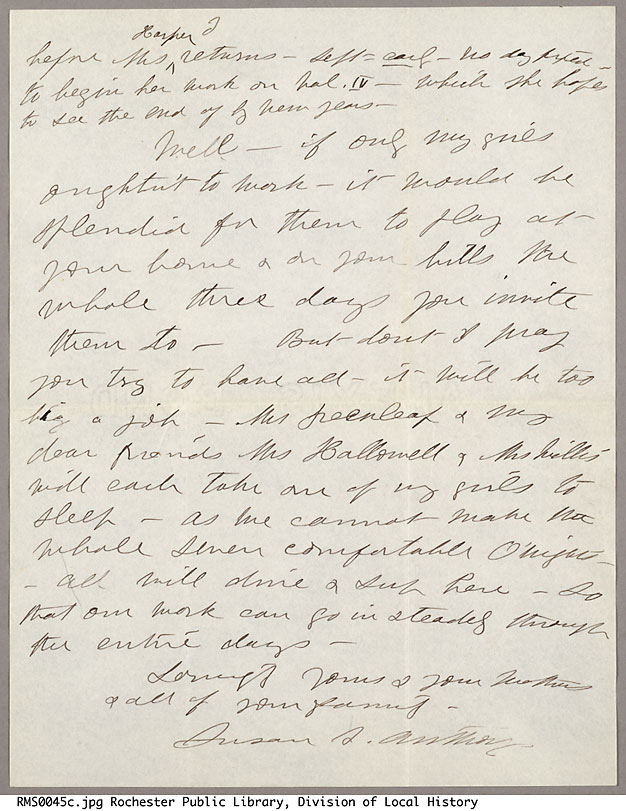 Harper
before Mrs returns — Sept — early — no day fixed —
to begin her work on Vol. IV — which she hopes
to see the end of by New Years —
Well — if only my girls
oughtn't to work — it would be
splendid for them to play at
your home & on your hills the
whole three days you invite
them to — But don't I pray
you try to have all — it will be too
big a job — Mrs Greenleaf & my
dear friends Mrs Hallowell & Mrs Willis
will each take one of my girls to
sleep — as we cannot make the
whole seven comfortable O'nights —
— all will dine & sup here — so
that our work can go in steadily through
the entire days —
Lovingly yours & your Mothers
& all of your family —
Susan B. Anthony
RMS0045c.jpg Rochester Public Library, Division of Local History